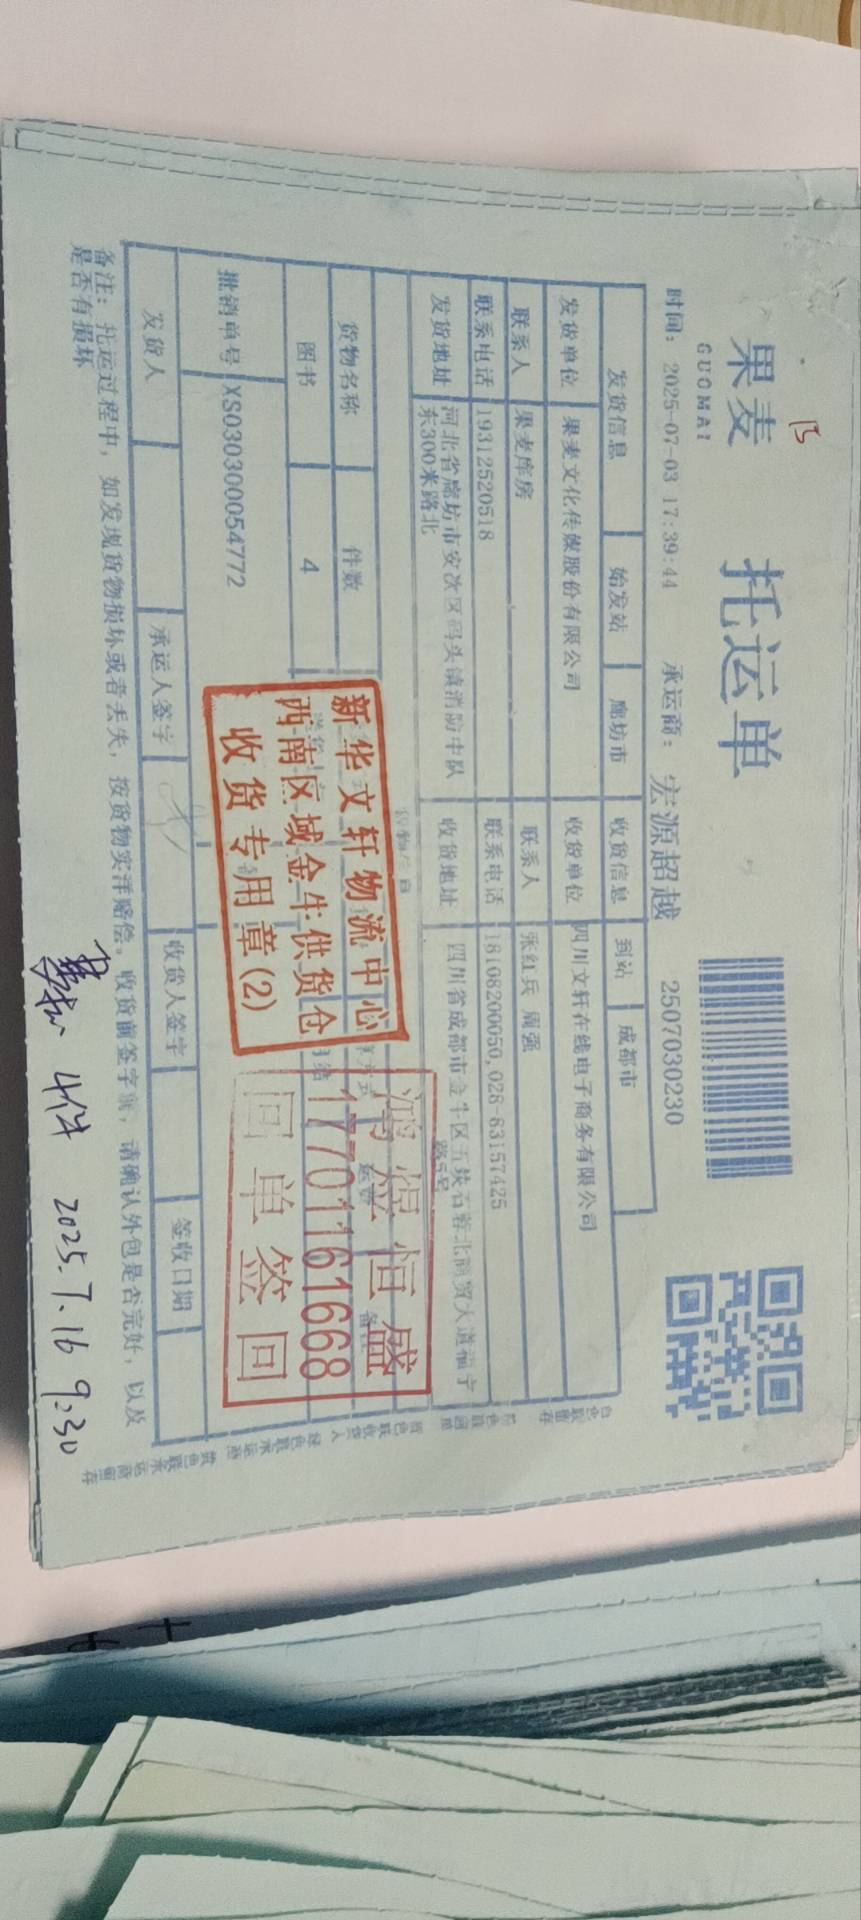 果麦 托运单
GUOMAI
时间: 2025-07-03 17:39:44 承运商: 宏源超越 2507030230
发货信息 始发站 廊坊市 收货信息 到站 成都市
发货单位 果麦文化传媒股份有限公司 收货单位 四川文轩在线电子商务有限公司
联系人 果麦库房 联系人 张红兵 周强
联系电话 19312520518 联系电话 18108200050,028-83157425
发货地址 河北省廊坊市安次区码头镇消防中队 收货地址 四川省成都市金牛区五块石蓉北商贸大道福宁
东300米路北 路5号
货物名称 件数
图书 4
批销单号 XS030300054772
新华文轩物流中心
西南区域金牛供货仓
收货专用章(2)
鸿烨恒盛
17701161668
回单签回
发货人 承运人签字 收货人签字 签收日期
备注: 托运过程中, 如发现货物损坏或者丢失, 按货物实洋赔偿。收货前签字前, 请确认外包是否完好, 以及
是否有损坏
4件 2025.7.16 9:30